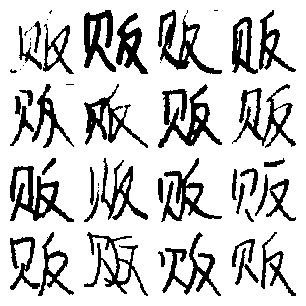 贩贩贩贩
贩贩贩贩
贩贩贩贩
贩贩贩贩